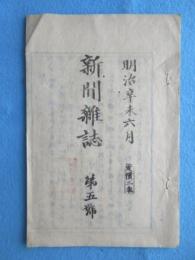 明治辛未六月
新聞雜誌
第五號